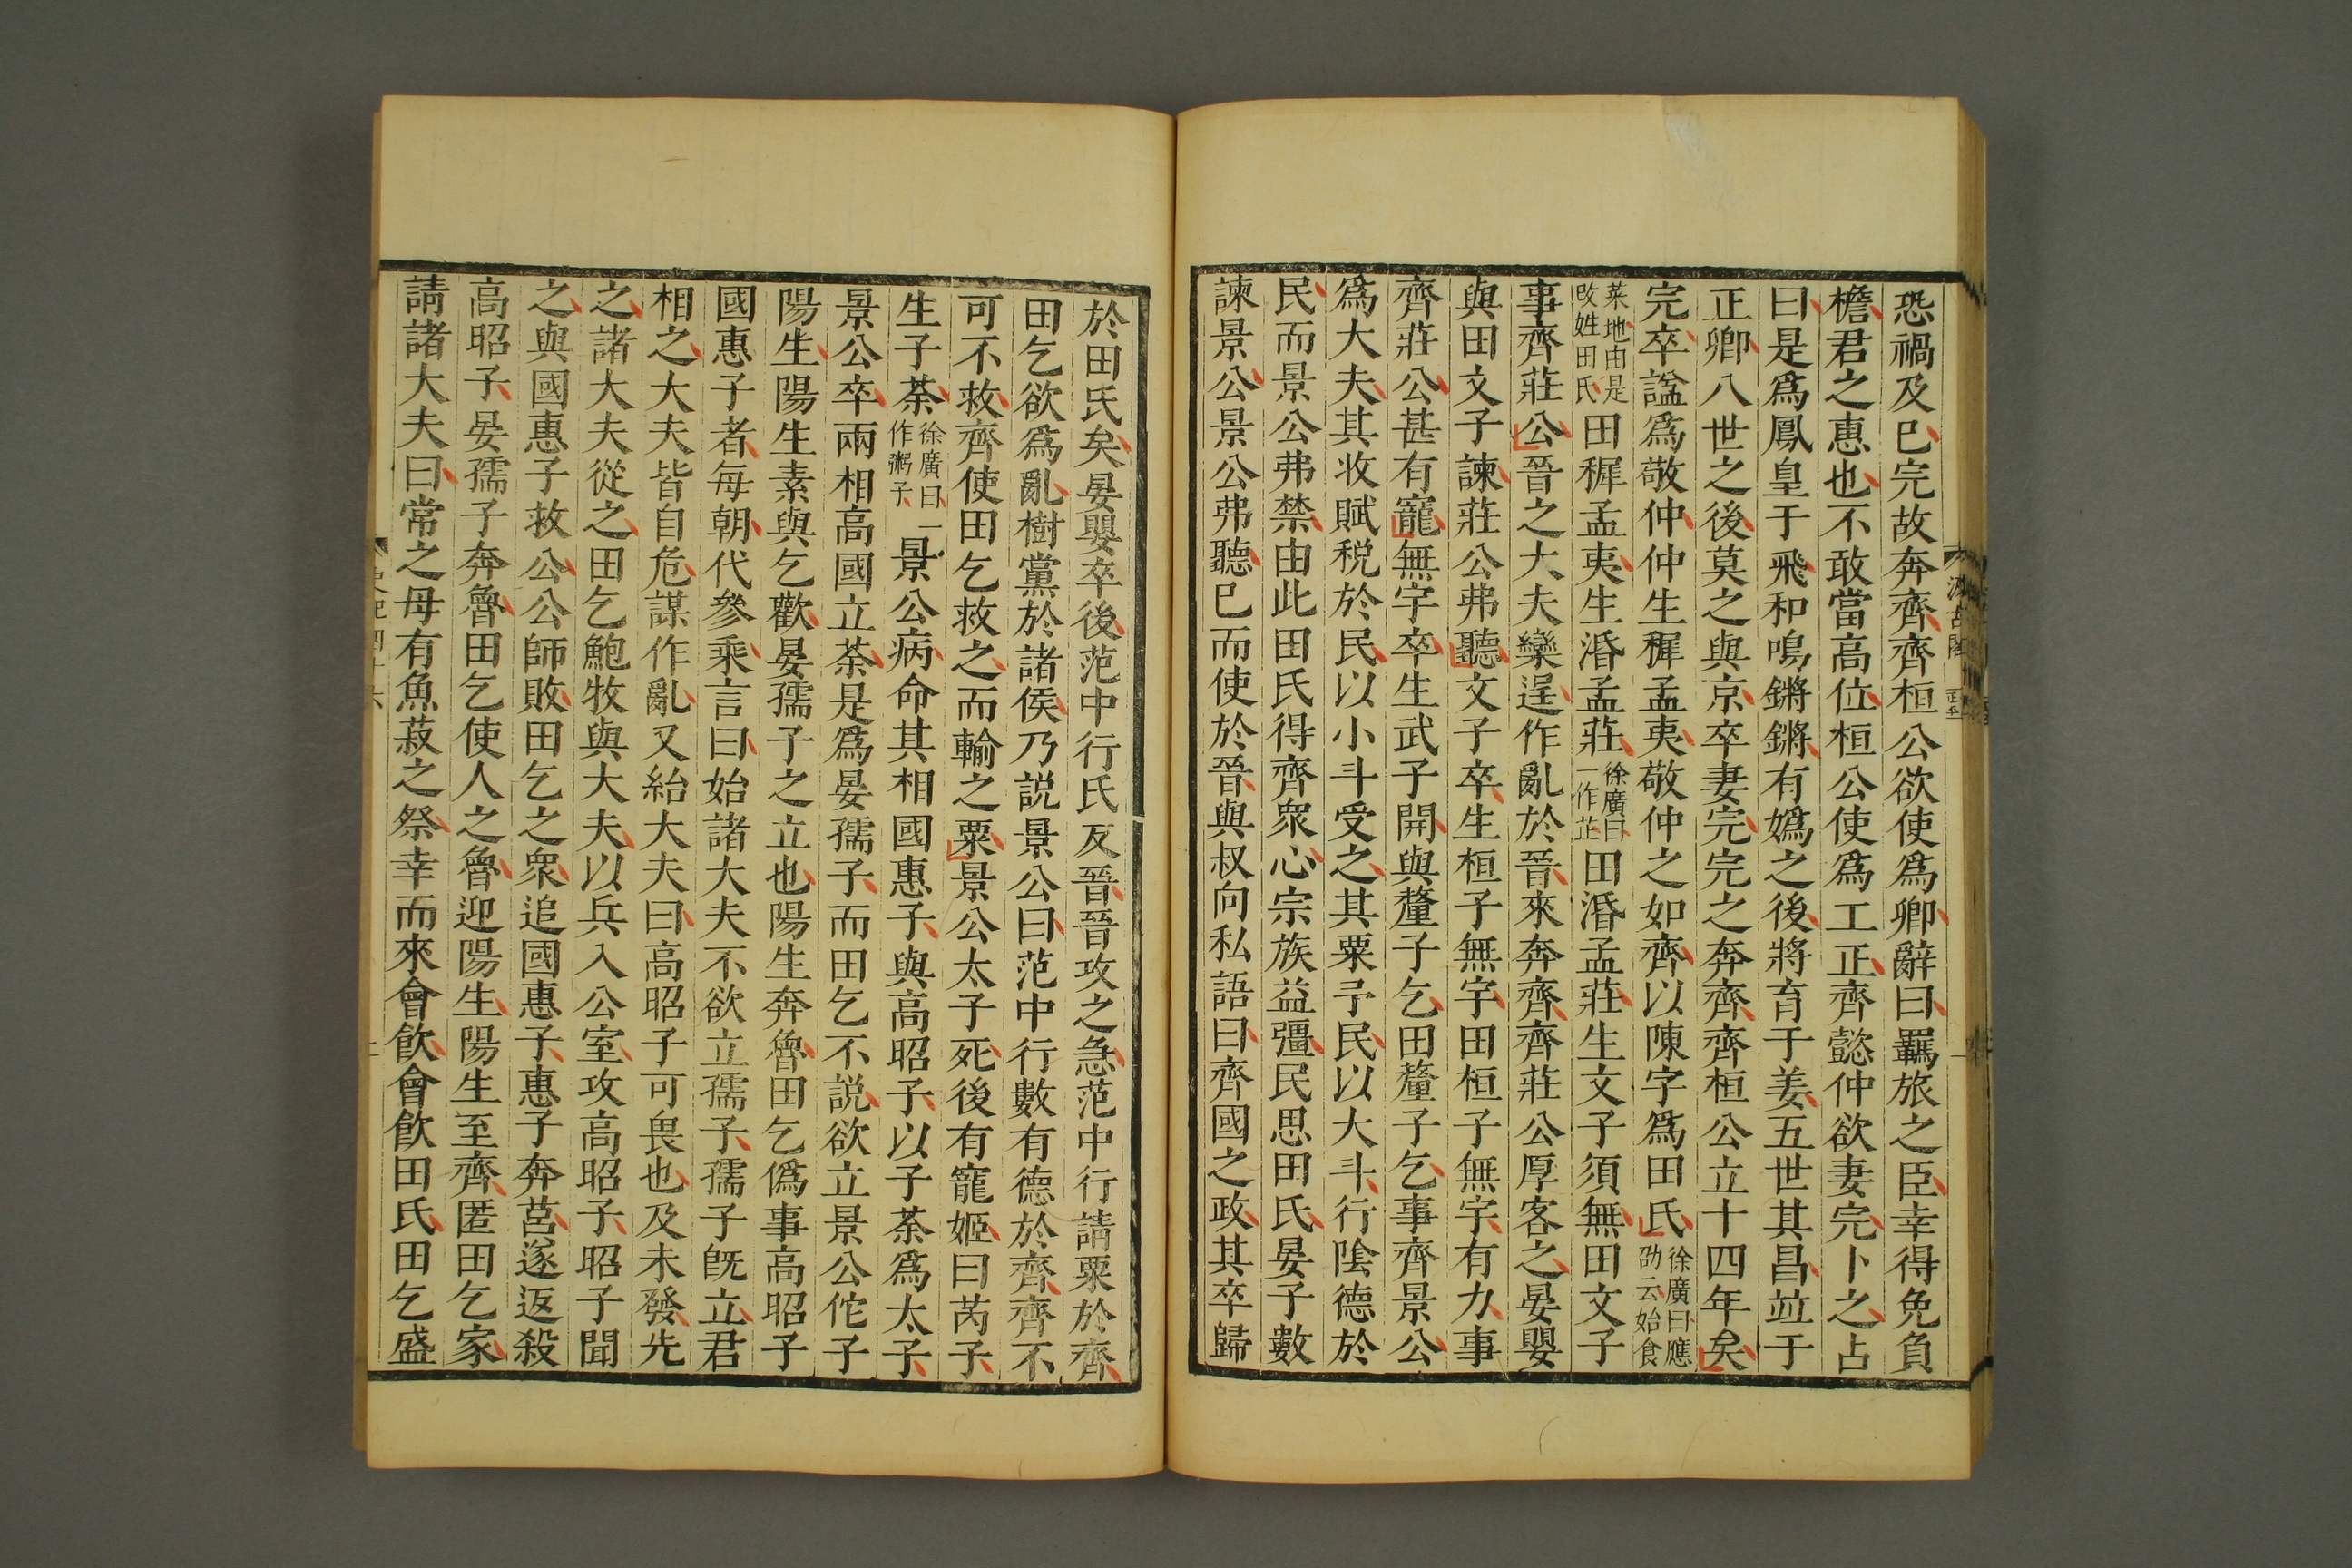 恐禍及已完故奔齊齊桓公欲使爲卿辭曰羈旅之臣幸得免負
檐君之惠也不敢當高位桓公使爲工正齊懿仲欲妻完卜之占
曰是爲鳳皇于飛和鳴鏘鏘有嬀之後將育于姜五世其昌竝于
正卿八世之後莫之與京卒妻完完之奔齊齊桓公立十四年矣
完卒諡爲敬仲仲生穉孟夷敬仲之如齊以陳字爲田氏徐廣曰應劭云始食
菜地由是改姓田氏田穉孟夷生湣孟莊徐廣曰一作芷田湣孟莊生文子須無田文子
事齊莊公晉之大夫欒逞作亂於晉來奔齊齊莊公厚客之晏嬰
與田文子諫莊公弗聽文子卒生桓子無宇田桓子無宇有力事
齊莊公甚有寵無宇卒生武子開與釐子乞田釐子乞事齊景公
爲大夫其收賦稅於民以小斗受之其粟予民以大斗行陰德於
民而景公弗禁由此田氏得齊衆心宗族益彊民思田氏晏子數
諫景公景公弗聽已而使於晉與叔向私語曰齊國之政其卒歸
於田氏矣晏嬰卒後范中行氏反晉晉攻之急范中行請粟於齊
田乞欲爲亂樹黨於諸侯乃説景公曰范中行數有德於齊齊不
可不救齊使田乞救之而輸之粟景公太子死後有寵姬曰芮子
生子荼徐廣曰一作粥子景公病命其相國惠子與高昭子以子荼爲太子
景公卒兩相高國立荼是爲晏孺子而田乞不説欲立景公佗子
陽生陽生素與乞歡晏孺子之立也陽生奔魯田乞僞事高昭子
國惠子者每朝代參乘言曰始諸大夫不欲立孺子孺子旣立君
相之大夫皆自危謀作亂又紿大夫曰高昭子可畏也及未發先
之諸大夫從之田乞鮑牧與大夫以兵入公室攻高昭子昭子聞
之與國惠子救公公師敗田乞之衆追國惠子惠子奔莒遂返殺
高昭子晏孺子奔魯田乞使人之魯迎陽生陽生至齊匿田乞家
請諸大夫曰常之母有魚菽之祭幸而來會飮會飮田氏田乞盛